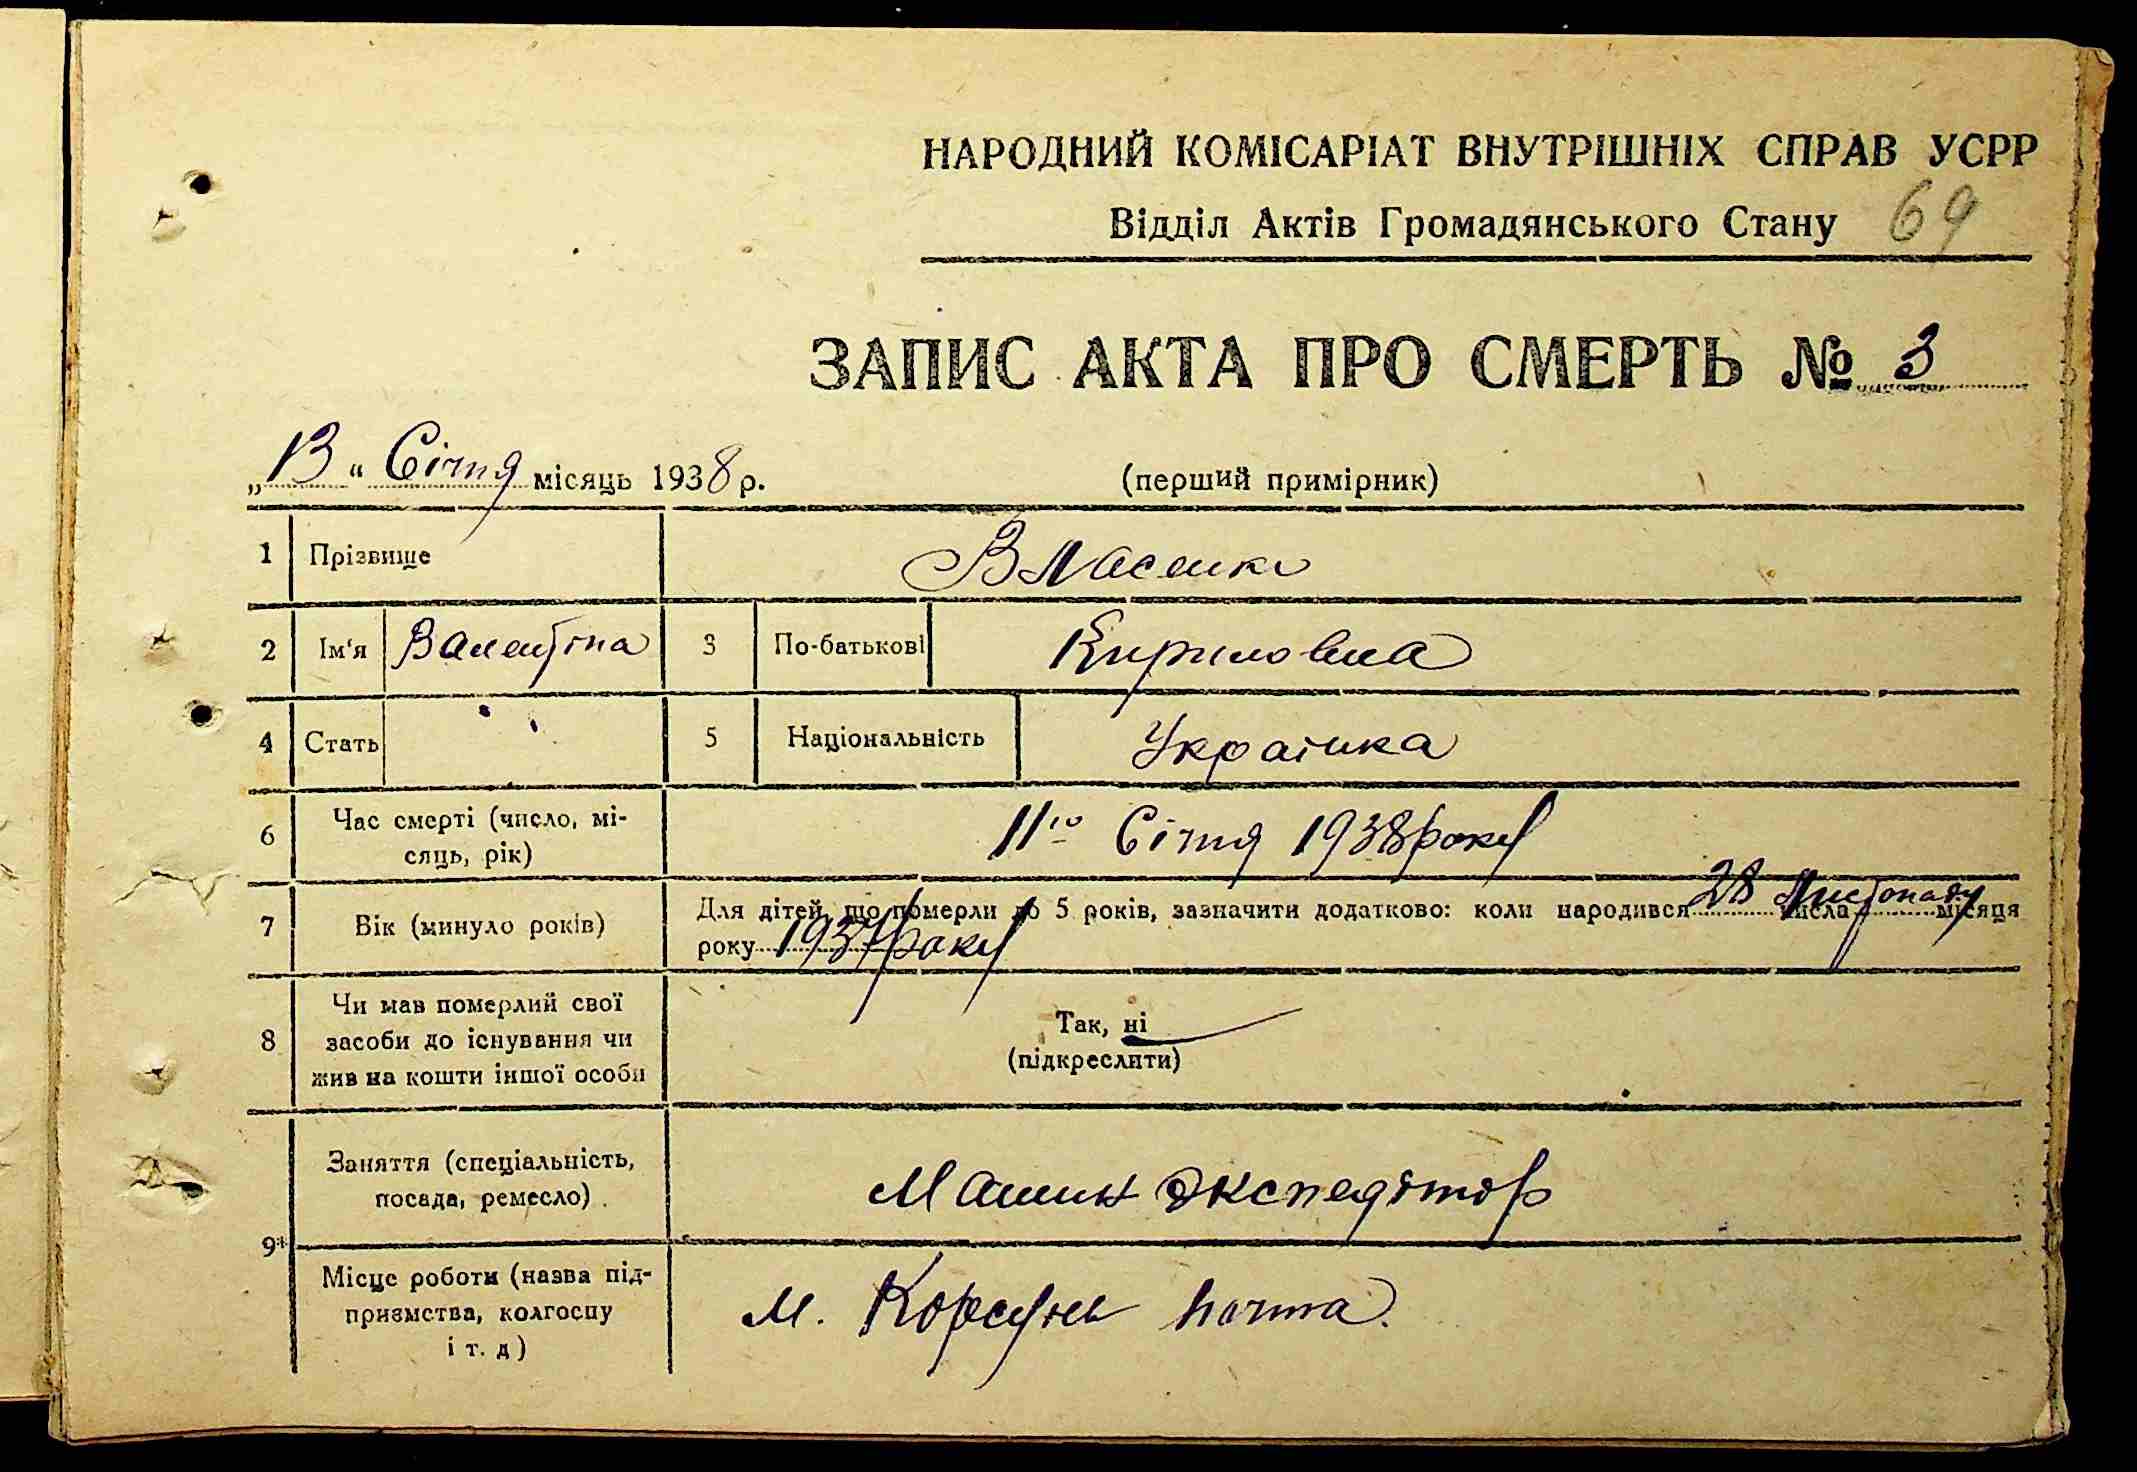 НАРОДНИЙ КОМІСАРІАТ ВНУТРІШНІХ СПРАВ УСРР
Відділ Актів Громадянського Стану 69
ЗАПИС АКТА ПРО СМЕРТЬ № 3
„13“ Січня місяць 1938 р. (перший примірник)
1 Прізвище Власенко
2 Ім'я Валентіна 3 По-батькові Кириловна
4 Стать 5 Національність Українка
6 Час смерті (число, мі-
сяць, рік) 11го Січня 1938 року
7 Вік (минуло років) Для дітей, що померли до 5 років, зазначити додатково: коли народився 28 числа Листопаду місяця
року 1937 року
8 Чи мав померлий свої
засоби до існування чи
жив на кошти іншої особи
Так, ні
(підкреслити)
9 Заняття (спеціальність,
посада, ремесло)
експедітор
Місце роботи (назва під-
приємства, колгоспу
і т. д)
м. Корсунь почта.